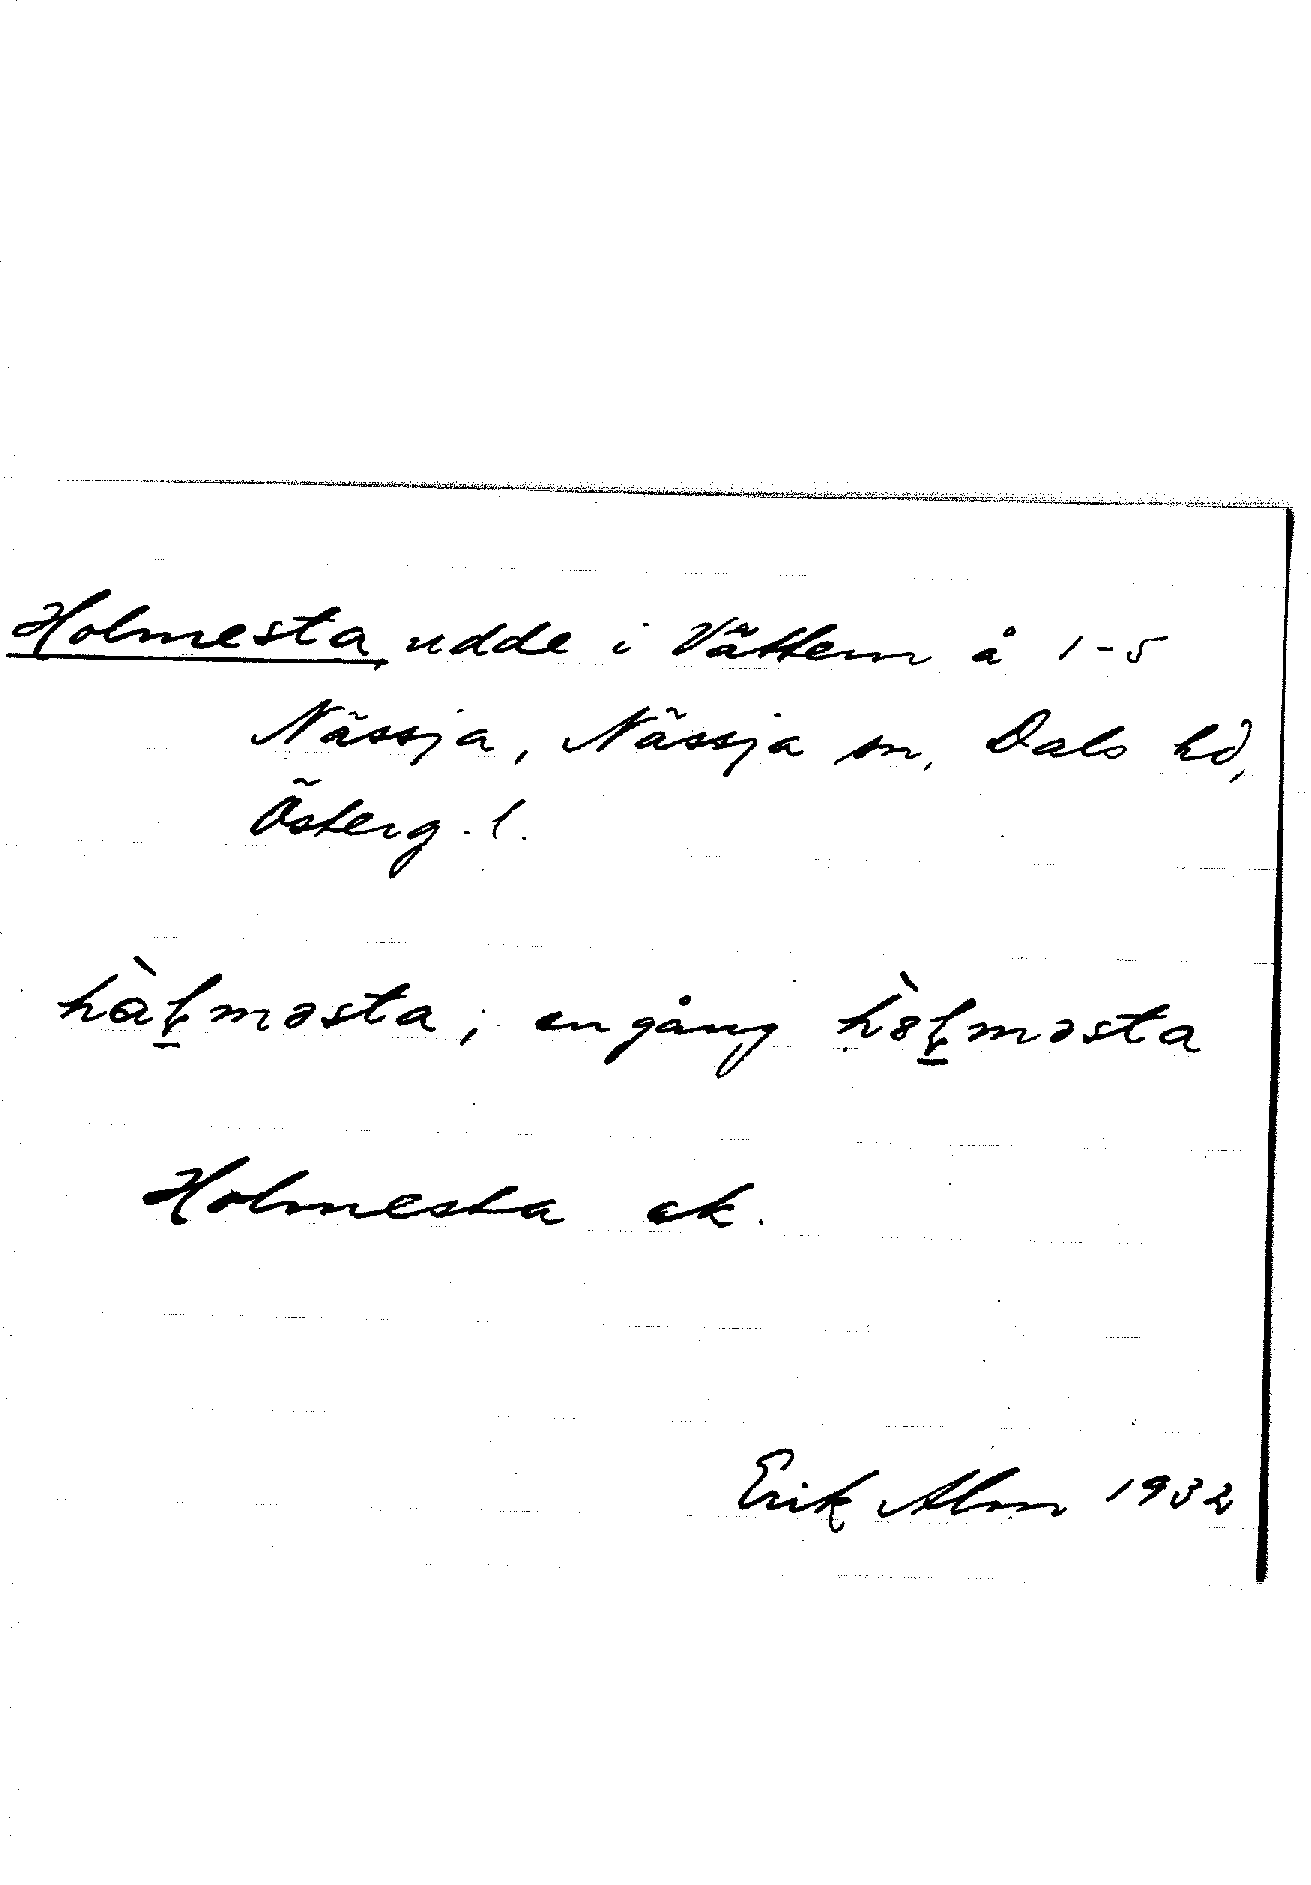 Holmesta, udde i Vättern å 1-5
Nässja, Nässja sn, Dals hd,
Österg. l.
hàłməsta; en gång hòłməsta
Holmesta ek.
Erik Alm 1932